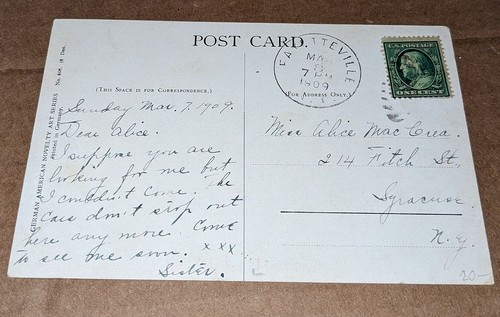 POST CARD.
(THIS SPACE IS FOR CORRESPONDENCE.)
(FOR ADDRESS ONLY.)
GERMAN AMERICAN NOVELTY ART SERIES
Printed in Germany
FAYETTEVILLE
MAR
8
7 PM
1909
U.S. POSTAGE
ONE CENT
Sunday Mar. 7. 1909.
Dear Alice.
I suppose you are
looking for me but
I couldn't come. The
Cars don't stop out
here any more. Come
to see me soon. x x x
Sister.
Miss Alice MacCrea.
214 Fitch St.
Syracuse
N.Y.
20-